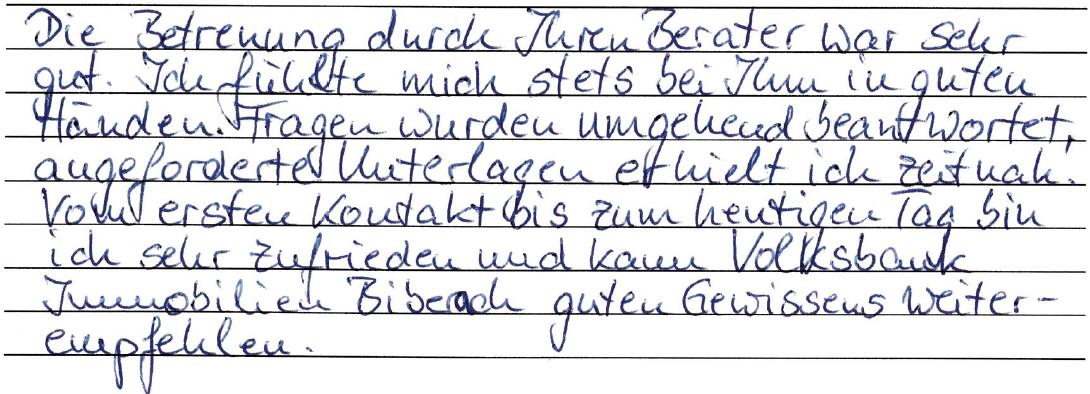 Die Betreuung durch Ihren Berater war sehr
gut. Ich fühlte mich stets bei Ihm in guten
Händen. Fragen wurden umgehend beantwortet,
angeforderte Unterlagen erhielt ich zeitnah.
Vom ersten Kontakt bis zum heutigen Tag bin
ich sehr zufrieden und kann Volksbank
Immobilien Biberach guten Gewissens weiter-
empfehlen.